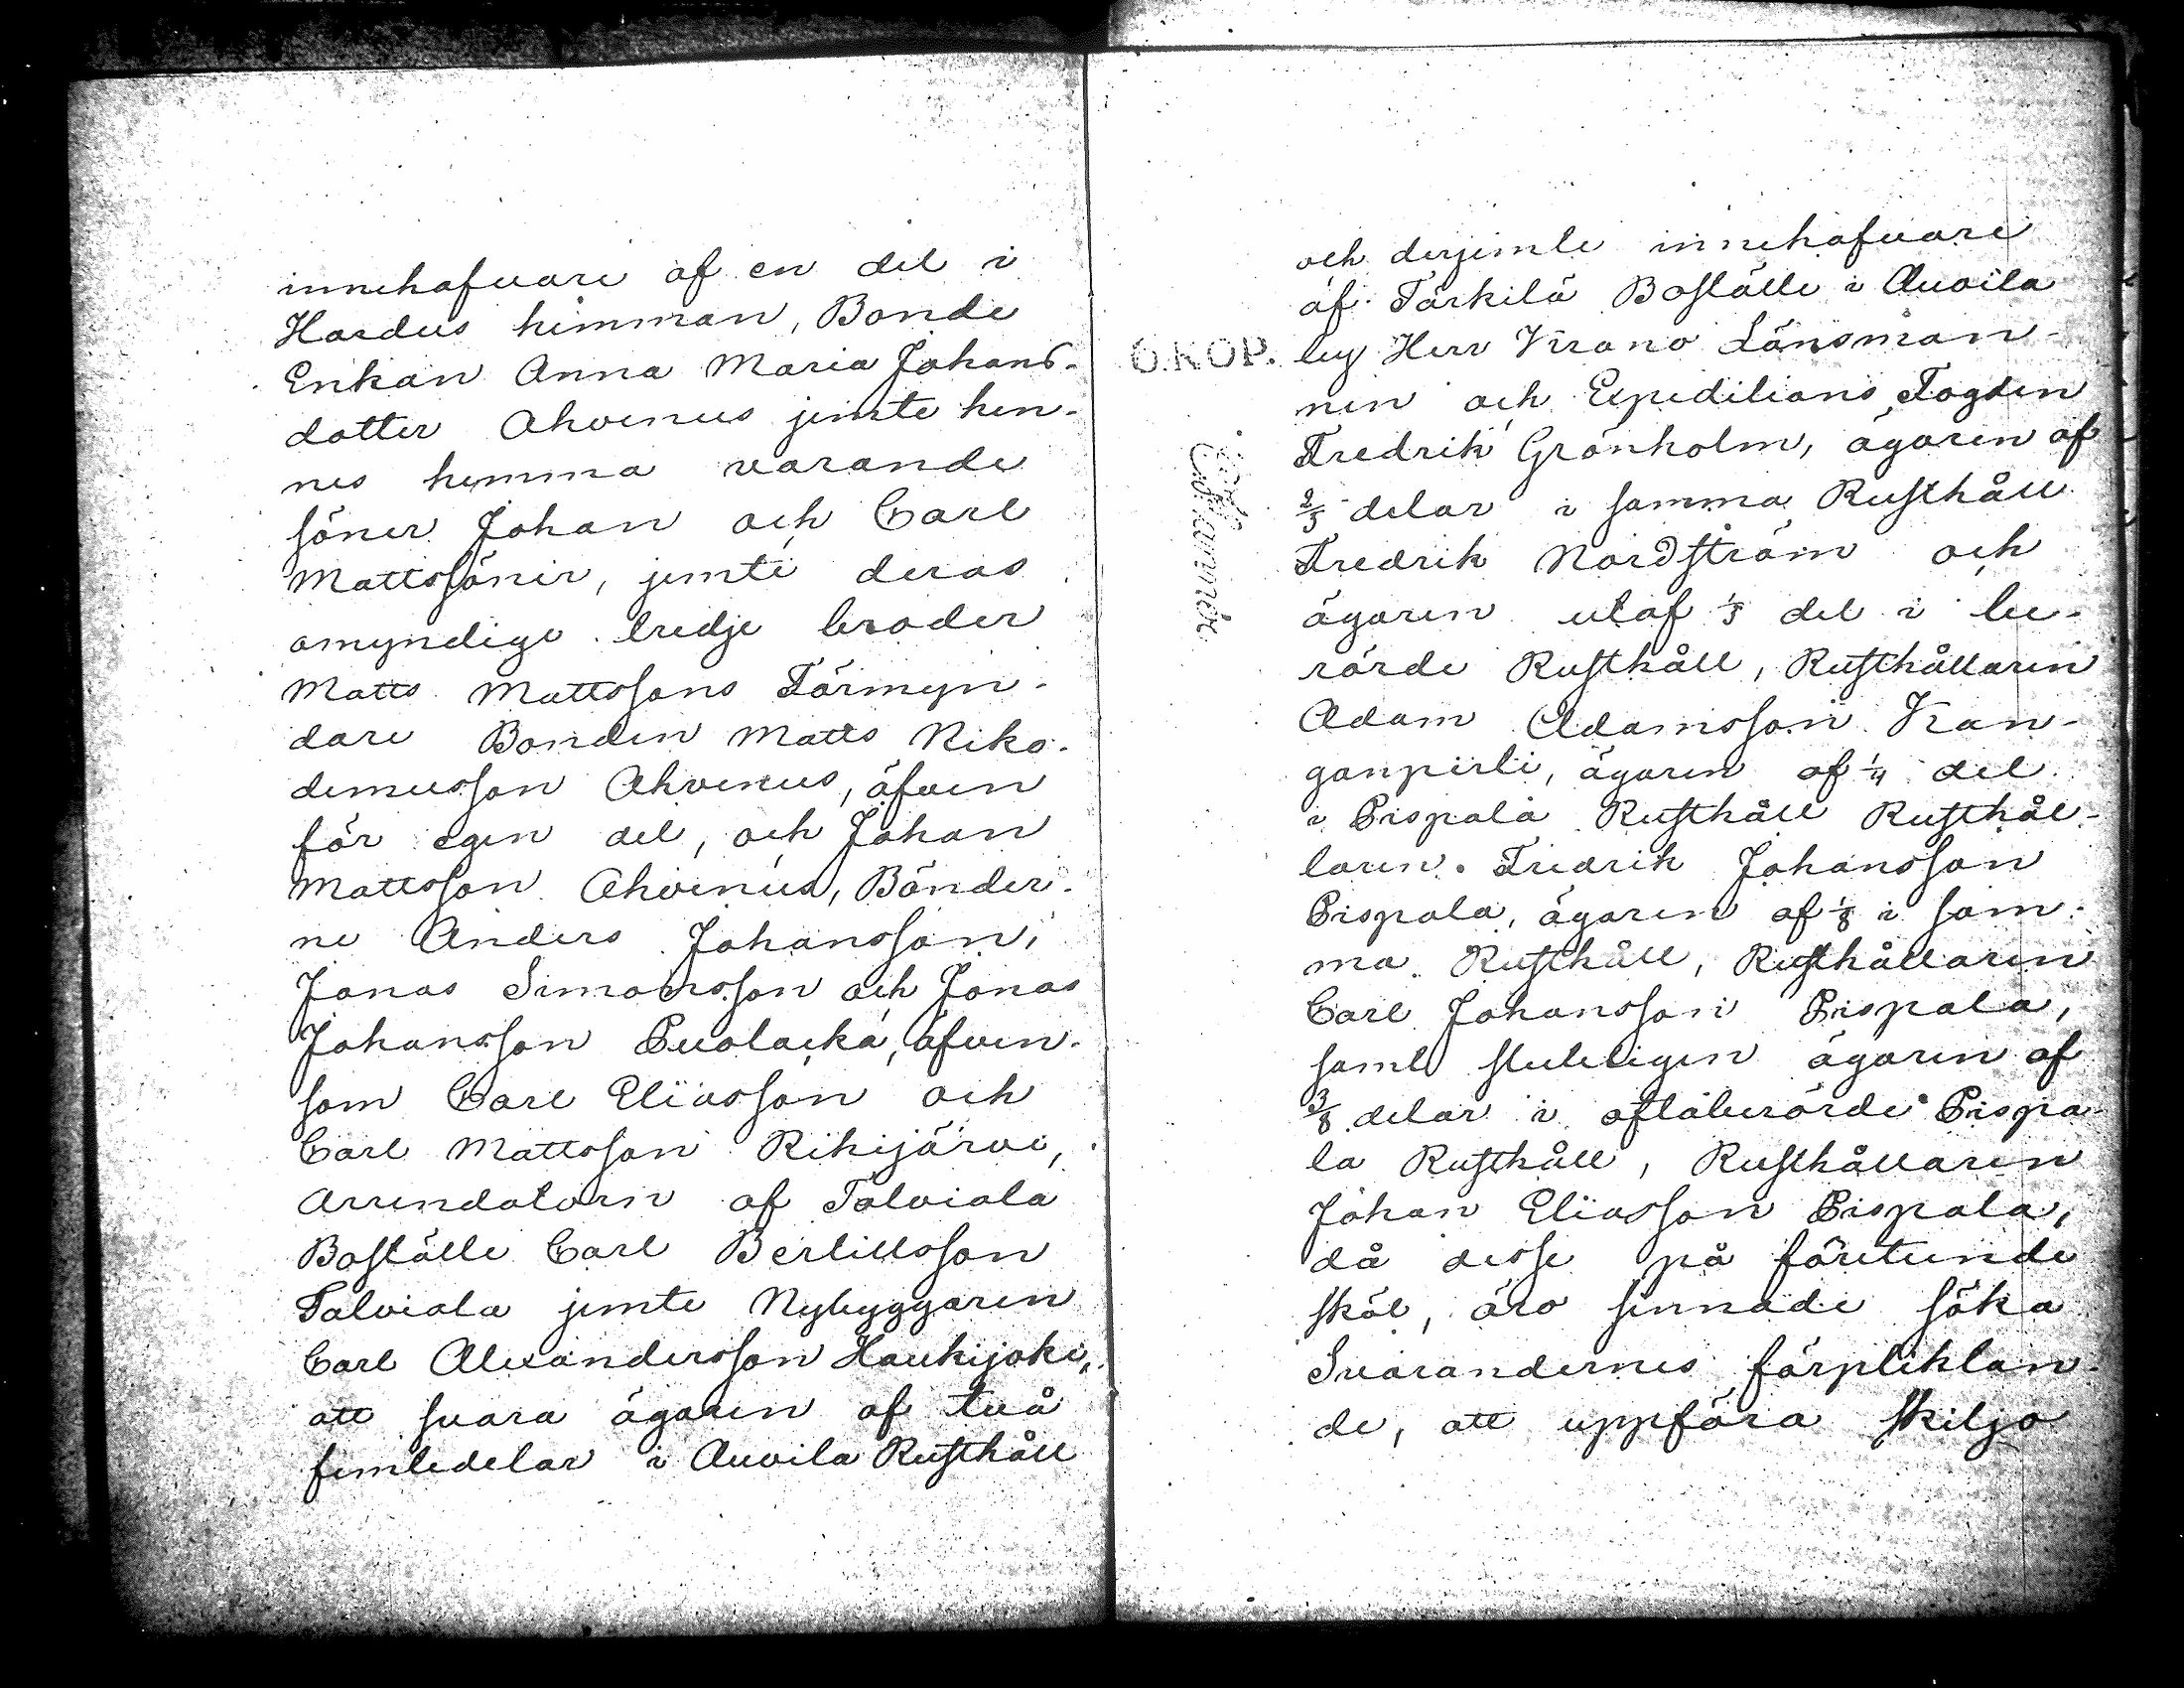 innehafvare af en del i
Hardus hemman, Bonde
Enkan Anna Maria Johans-
dotter Ahvenus jemte hen-
nes hemma varande
söner Johan och Carl
Mattssöner, jemte deras
omyndige tredje broder
Matts Mattssons Förmyn-
dare Bonden Matts Niko-
demusson Ahvenus, äfven
för egen del, och Johan
Mattsson Ahvenus, Bönder-
ne Anders Johansson,
Jonas Simonsson och Jonas
Johansson Puolacka, äfven-
som Carl Eliasson och
Carl Mattsson Rihijärvi,
Arrendatorn af Talviala
Boställe Carl Bertillsson
Talviala jemte Nybyggaren
Carl Alexandersson Haukijoki,
att svara ägaren af två
femtedelar i Auvila Rusthåll
och derjemte innehafvare
af Tärkilä Boställe i Auvila
6.KOP.
by Herr Krono Länsman-
nen och Expeditions Fogden
Fredrik Grönholm, ägaren af
2/5 delar i samma Rusthåll
Fredrik Nordström och
ägaren utaf 1/5 del i be-
rörde Rusthåll, Rusthållaren
Adam Adamsson Kan-
ganpirti, ägaren af 1/4 del
i Pispala Rusthåll Rusthål-
laren Fredrik Johansson
Pispala, ägaren af 1/8 i sam-
ma Rusthåll, Rusthållaren
Carl Johansson Pispala,
samt sluteligen ägaren af
3/8 delar i oftaberörde Pispa-
la Rusthåll, Rusthållaren
Johan Eliasson Pispala,
då desse på företeende
skäl, äro sinnade söka
Svarandernes förpliktan-
de, att uppföra skiljo